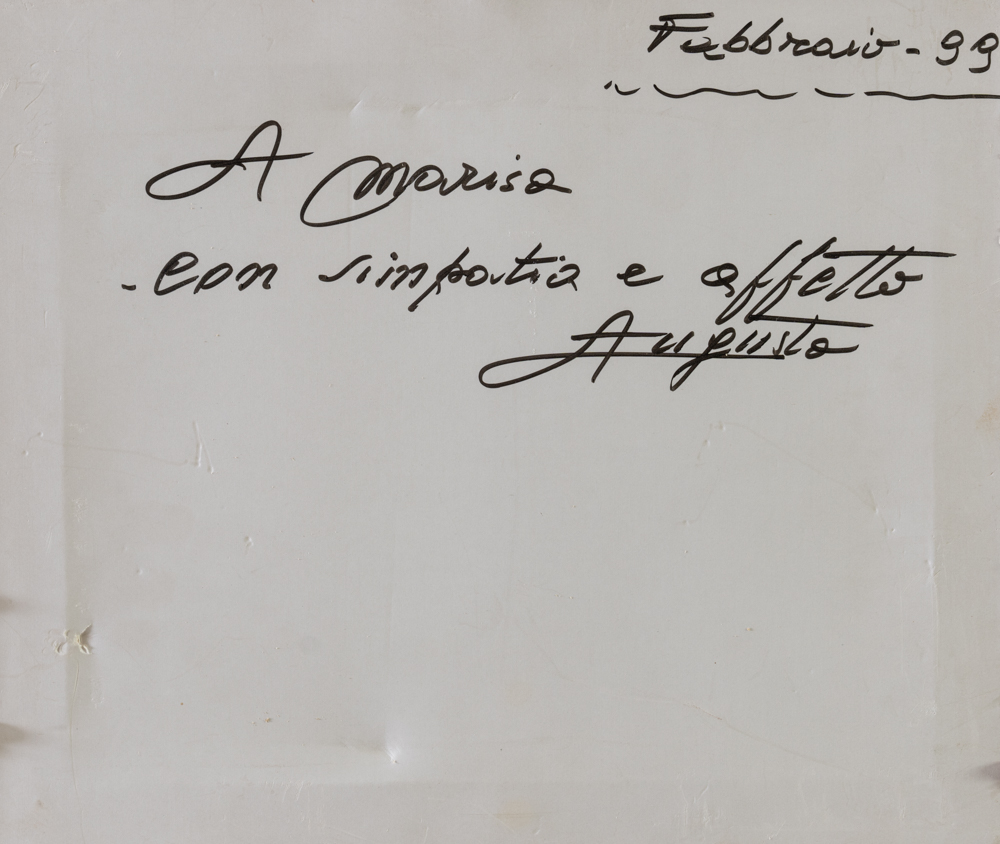 Febbraio - 99
A Marisa
- con simpatia e affetto
Augusto